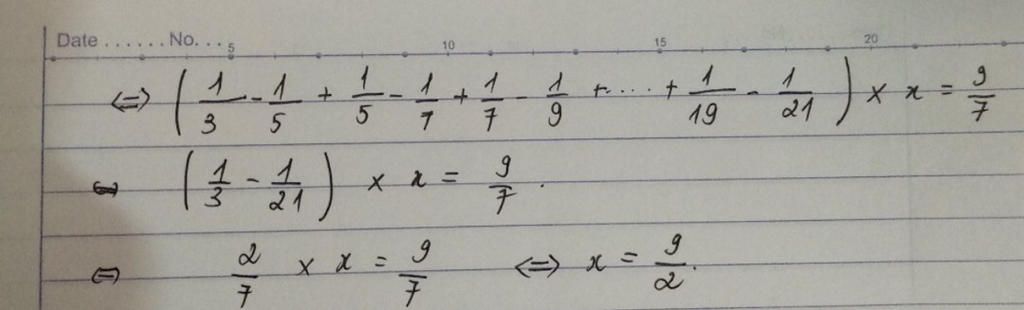 Date ...... No. ... 5 10 15 20
⇔ (1/3 - 1/5 + 1/5 - 1/7 + 1/7 - 1/9 + .... + 1/19 - 1/21) × x = 9/7
⇔ (1/3 - 1/21) × x = 9/7.
⇔ 2/7 × x = 9/7 ⇔ x = 9/2.